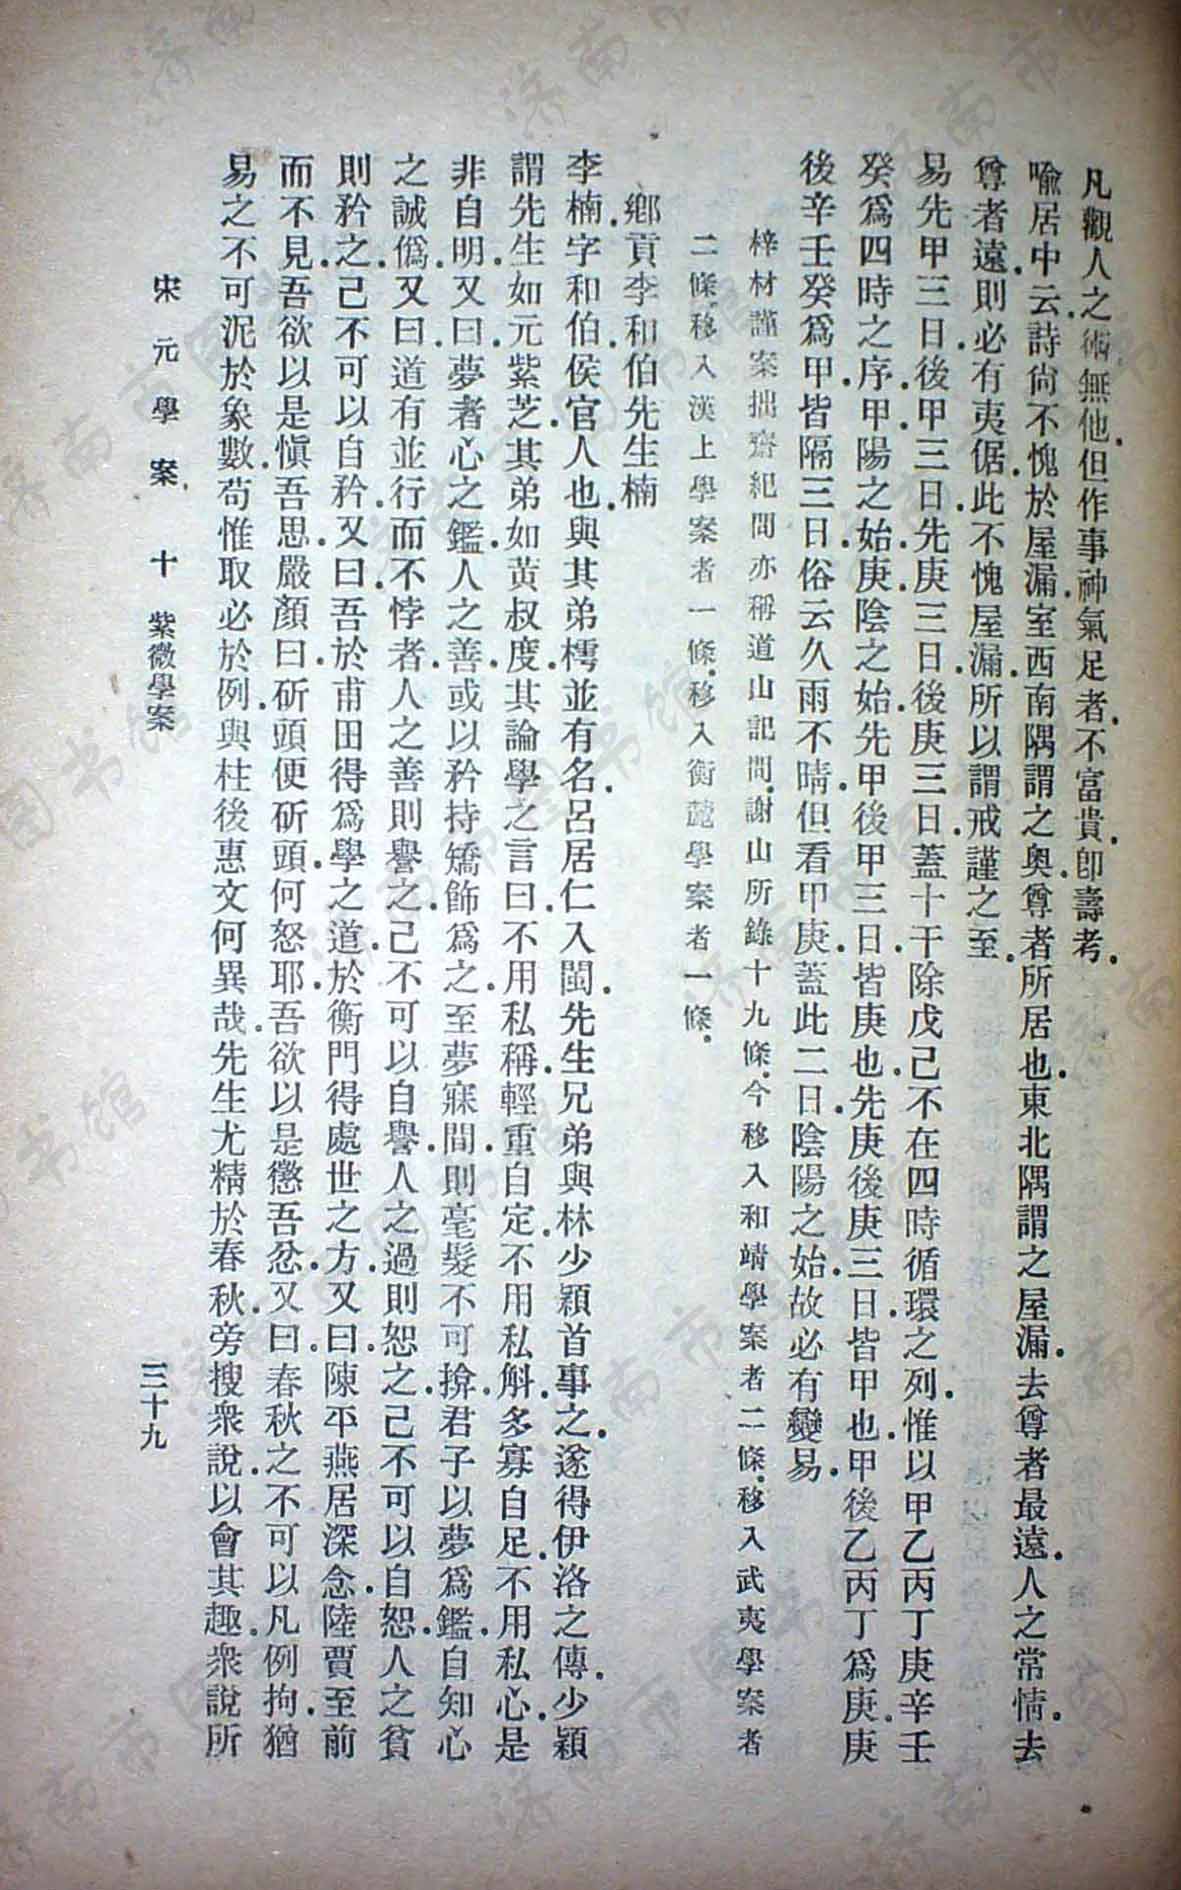 凡觀人之術無他.但作事神氣足者.不富貴.卽壽考.
喩居中云.詩尙不愧於屋漏.室西南隅謂之奧.尊者所居也.東北隅謂之屋漏.去尊者最遠.人之常情.去
尊者遠.則必有夷倨.此不愧屋漏.所以謂戒謹之至.
易先甲三日.後甲三日.先庚三日.後庚三日.蓋十干除戊己不在四時循環之列.惟以甲乙丙丁庚辛壬
癸爲四時之序.甲陽之始.庚陰之始.先甲後甲三日.皆庚也.先庚後庚三日.皆甲也.甲後乙丙丁爲庚.庚
後辛壬癸爲甲.皆隔三日.俗云.久雨不晴.但看甲庚.蓋此二日.陰陽之始.故必有變易.
梓材謹案.拙齋紀問亦稱道山記問.謝山所錄十九條.今移入和靖學案者二條.移入武夷學案者
二條.移入漢上學案者一條.移入衡麓學案者一條.
鄕貢李和伯先生楠
李楠.字和伯.侯官人也.與其弟樗並有名.呂居仁入閩.先生兄弟與林少穎首事之.遂得伊洛之傳.少穎
謂先生如元紫芝.其弟如黃叔度.其論學之言曰.不用私稱.輕重自定.不用私斛.多寡自足.不用私心.是
非自明.又曰.夢者心之鑑.人之善.或以矜持矯飾爲之.至夢寐間.則毫髮不可揜.君子以夢爲鑑.自知心
之誠僞.又曰.道有並行而不悖者.人之善則譽之.己不可以自譽.人之過則恕之.己不可以自恕.人之貧
則矜之.己不可以自矜.又曰.吾於甫田得爲學之道.於衡門得處世之方.又曰.陳平燕居深念.陸賈至前
而不見.吾欲以是愼吾思.嚴顏曰.斫頭便斫頭.何怒耶.吾欲以是懲吾忿.又曰.春秋之不可以凡例拘.猶
易之不可泥於象數.苟惟取必於例.與柱後惠文何異哉.先生尤精於春秋.旁搜衆說.以會其趣.衆說所
宋元學案 十 紫微學案 三十九